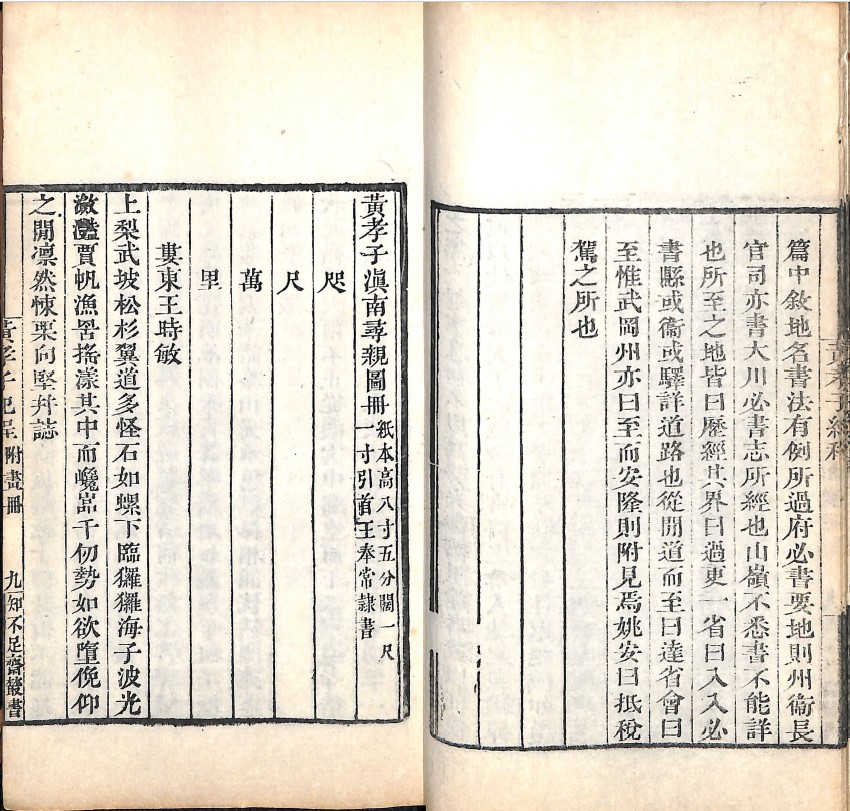 篇中敘地名書法有例所過府必書要地則州衞長
官司亦書大川必書志所經也山嶺不悉書不能詳
也所至之地皆曰歷經其界曰過更一省曰入入必
書縣或衞或驛詳道路也從閒道而至曰達省會曰
至惟武岡州亦曰至而安隆則附見焉姚安曰抵稅
駕之所也
黃孝子滇南尋親圖冊紙本高八寸五分闊一尺
一寸引首王奉常隸書
咫
尺
萬
里
婁東王時敏
上梨武坡松杉翼道多怪石如螺下臨玀玀海子波光
瀲灩賈帆漁罟搖漾其中而巉嵓千仞勢如欲墮俛仰
之閒凛然悚栗向堅幷誌
黃孝子紀程
附畫冊
九
知不足齋叢書